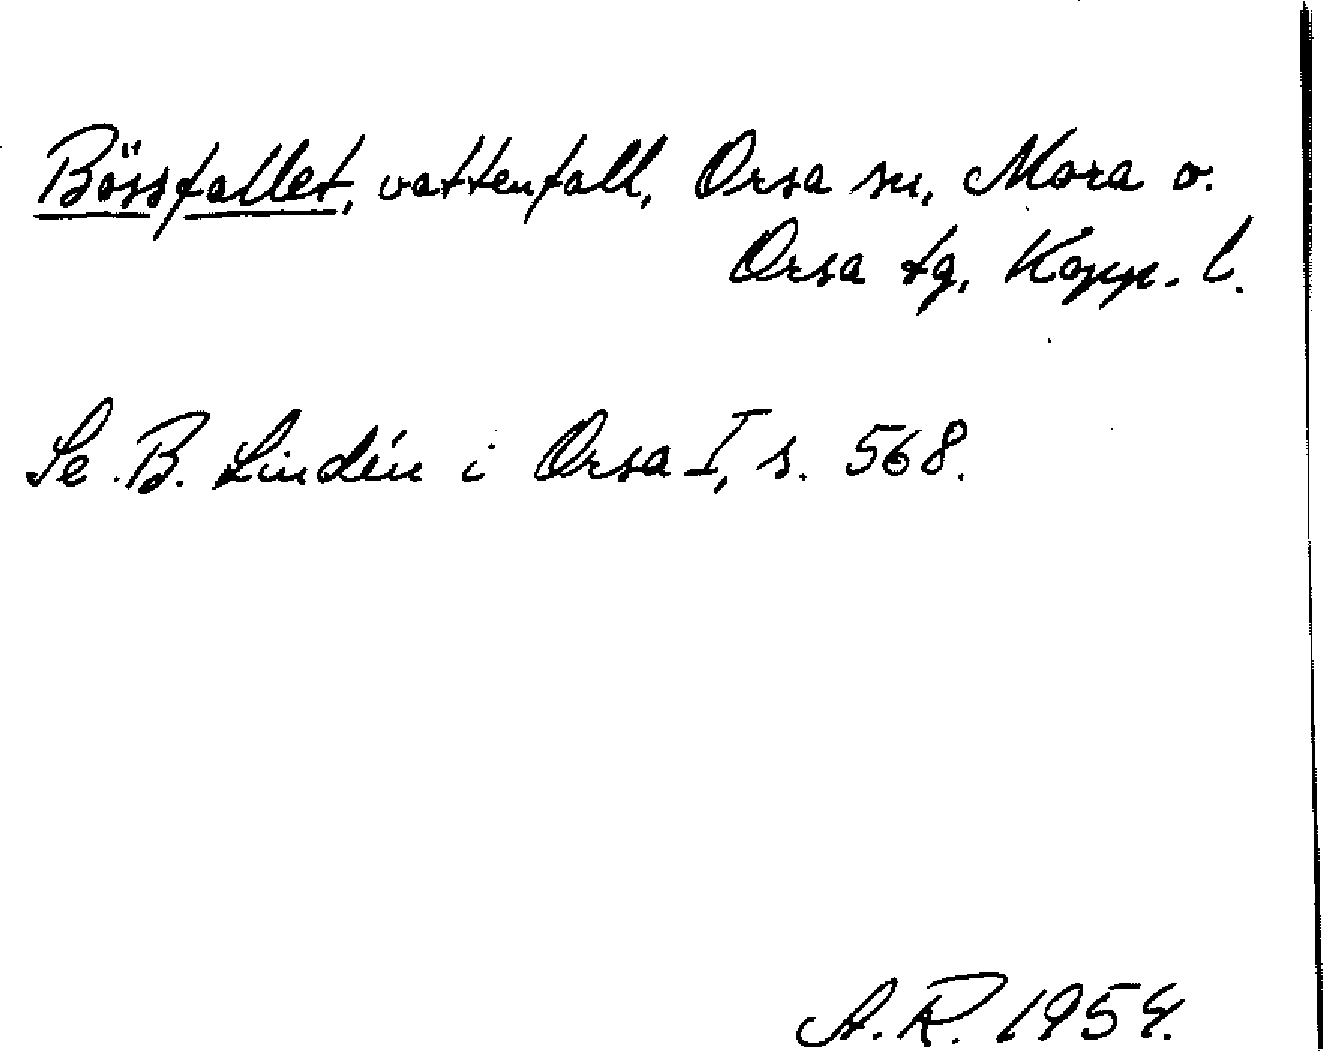 Bössfallet, vattenfall, Orsa sn, Mora o.
Orsa tg, Kopp. l.
Se B. Lindén i Orsa I, s. 568.
A. R. 1954.